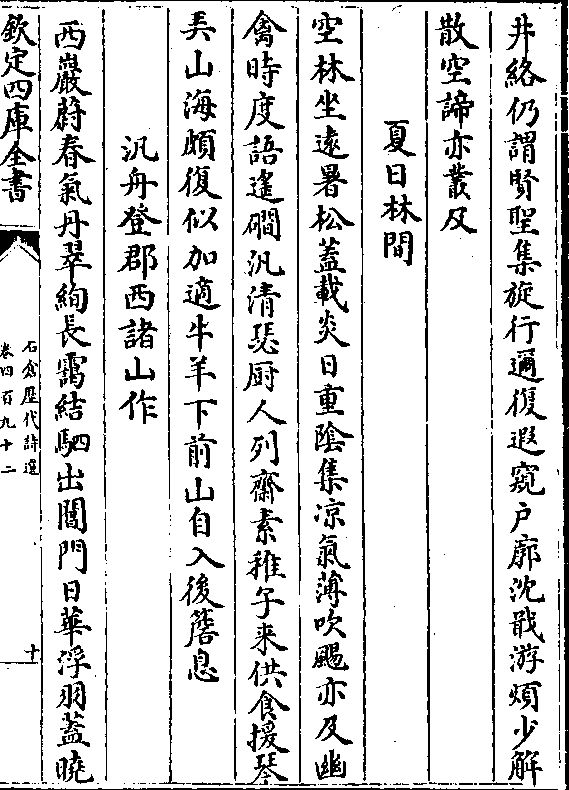 井絡仍謂賢聖集旋行邇復遐窺戶廓沈戢游煩少解
散空諦亦叢及
夏日林間
空林坐逺暑松蓋載炎日重陰集凉氣薄吹颺亦及幽
禽時度語遙磵汎清瑟厨人列齋素稚子来供食援琴
弄山海頗復似加適牛羊下前山自入後簷息
汎舟登郡西諸山作
西巖蔚春氣丹翠絢長靄結駟出閶門日華浮羽蓋曉
欽定四庫全書
石倉歴代詩選
卷四百九十二
十